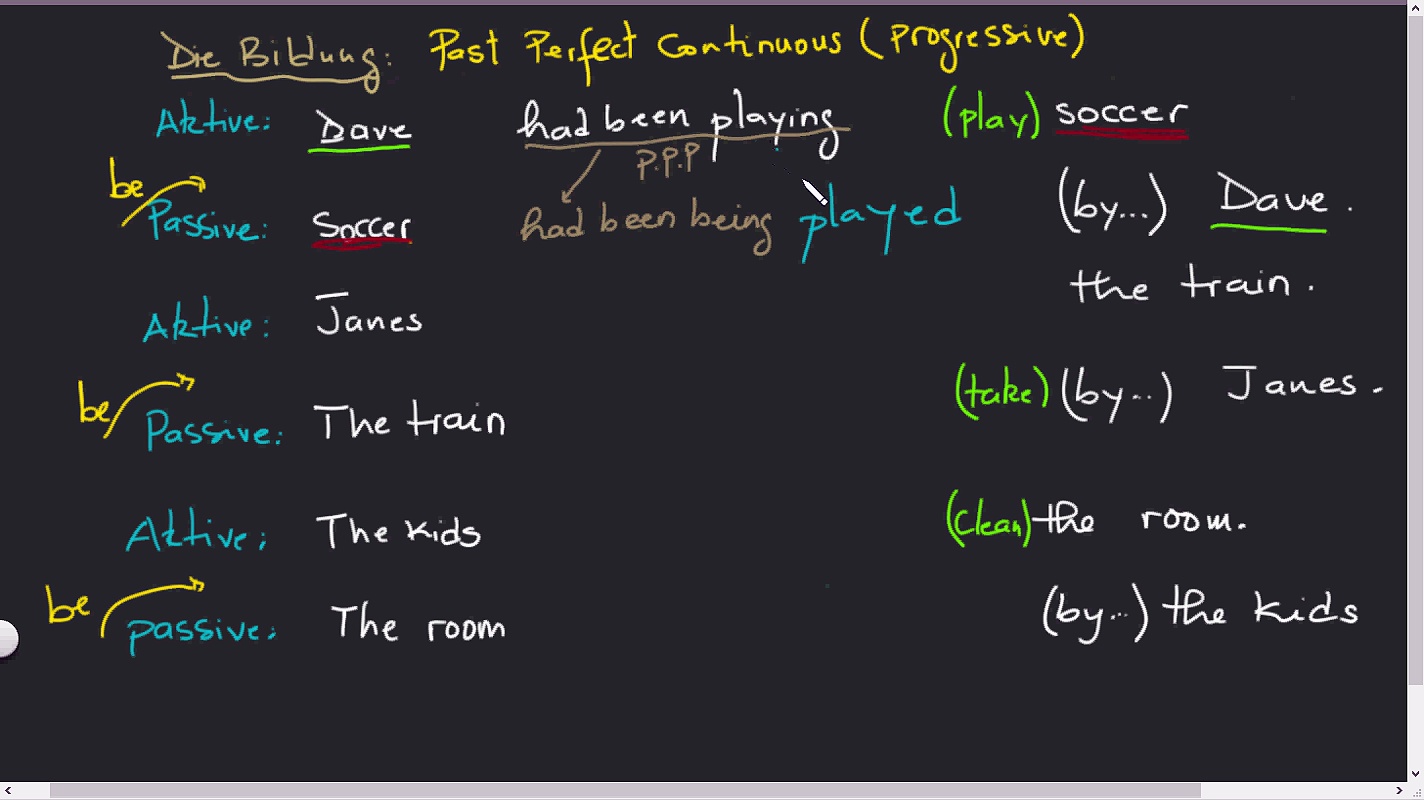 Die Bildung: Past Perfect Continuous (Progressive)
Aktive: Dave had been playing (play) soccer
P.P.P
be
Passive: Soccer had been being played (by...) Dave.
the train.
Aktive: Janes
be
Passive: The train (take) (by..) Janes.
Aktive: The kids (clean) the room.
be
passive: The room (by...) the kids